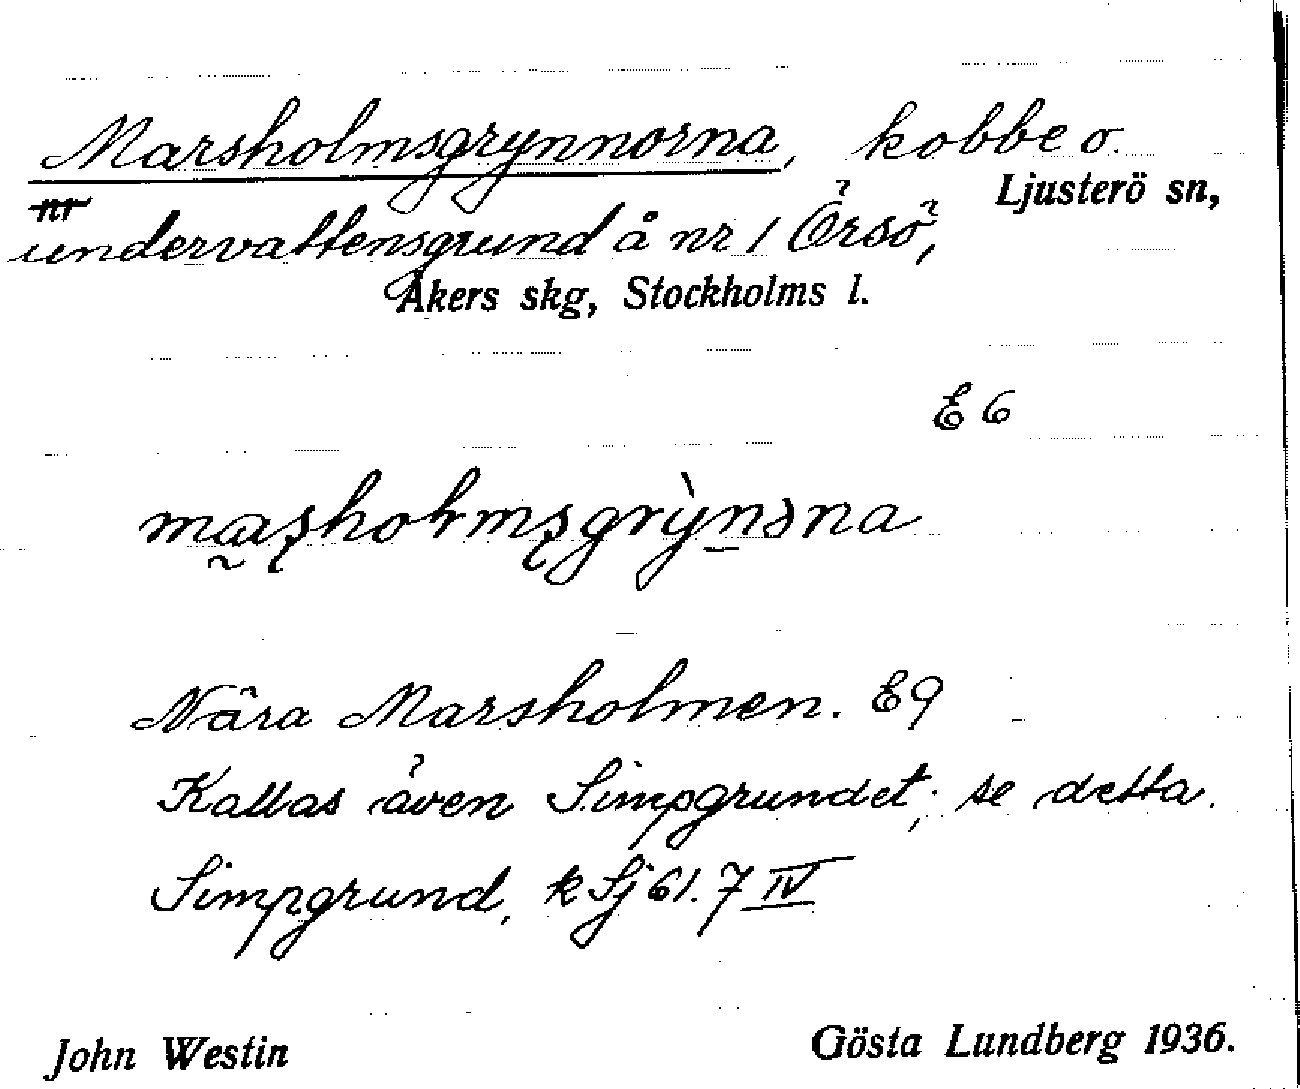 Marsholmsgrynnorna, kobbe o.
Ljusterö sn,
nr
undervattensgrund å nr 1 Örsö,
Åkers skg, Stockholms l.
E 6
Nära Marsholmen. E9
Kallas även Simpgrundet; se detta.
Simpgrund, k Sj 61. 7 IV
John Westin
Gösta Lundberg 1936.